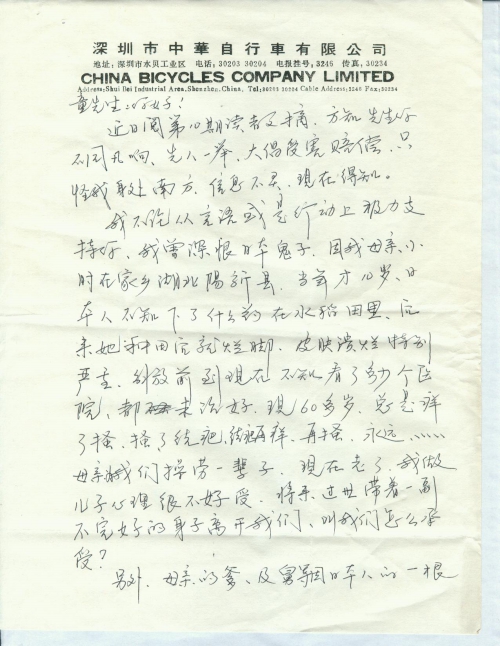 深圳市中華自行車有限公司
地址：深圳市水贝工业区 电话：30203 30204 电报挂号：3245 传真：30234
CHINA BICYCLES COMPANY LIMITED
Address:Shui Bei Industrial Area, Shenzhen, China, Tel:30203 30204 Cable Address:3245 Fax:30234
童先生：你好！
近日阅第10期读者文摘，方知先生你
不同凡响，先人一举，大倡受害赔偿，只
怪我身处南方，信息不灵，现在得知。
我不论从言语或是行动上极力支
持你，我曾深恨日本鬼子，因我母亲小
时在家乡湖北陽新县，当年才10岁，日
本人不知下了什么药在水稻田里，后
来她插田后就烂脚，皮肤溃烂特别
严重，解放前到现在不知看了多少个医
院，都未治好，现60多岁，总是痒
了搔，搔了结疤，结疤再痒，再搔，永远……
母亲将我们操劳一辈子，现在老了，我做
儿子心理很不好受，将来过世带着一副
不完好的身子离开我们，叫我们怎么承
受？
另外，母亲的爹、及舅因日本人的一根